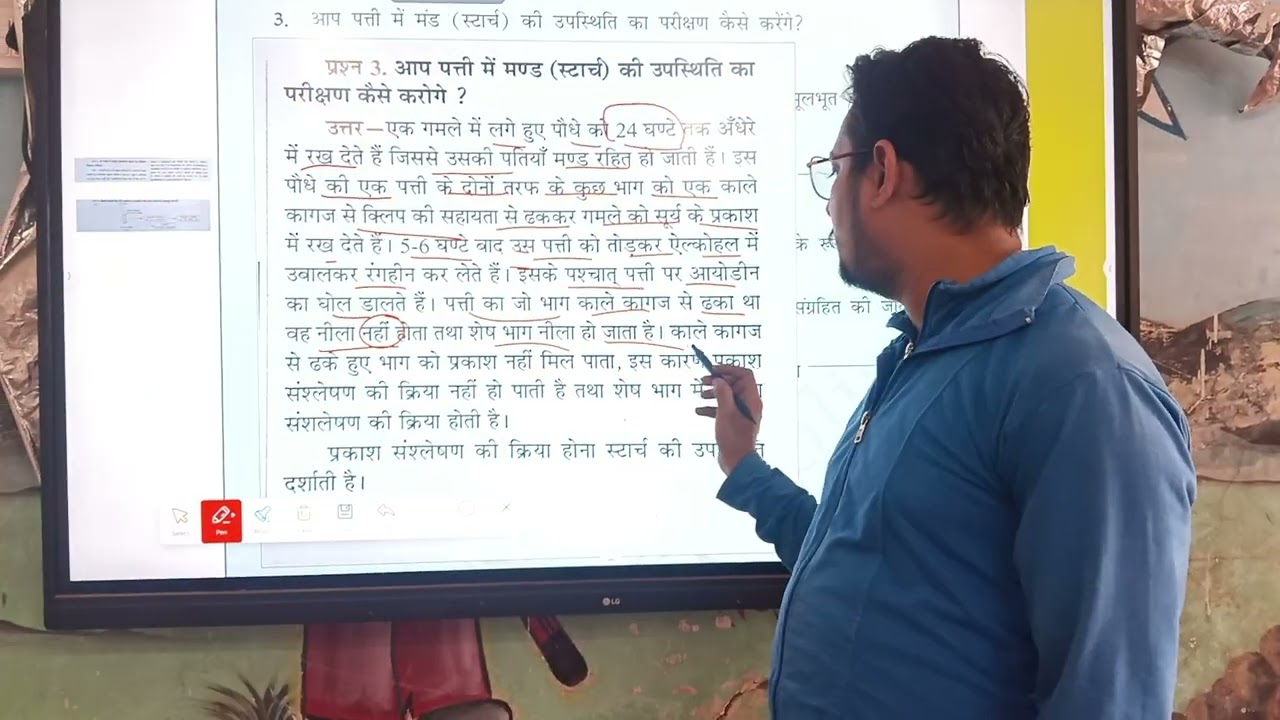 3. आप पत्ती में मंड (स्टार्च) की उपस्थिति का परीक्षण कैसे करेंगे?
प्रश्न 3. आप पत्ती में मण्ड (स्टार्च) की उपस्थिति का
परीक्षण कैसे करोगे ?
उत्तर—एक गमले में लगे हुए पौधे को 24 घण्टे तक अँधेरे
में रख देते हैं जिससे उसकी पतियाँ मण्ड रहित हो जाती हैं। इस
पौधे की एक पत्ती के दोनों तरफ के कुछ भाग को एक काले
कागज से क्लिप की सहायता से ढककर गमले को सूर्य के प्रकाश
में रख देते हैं। 5-6 घण्टे बाद उस पत्ती को तोड़कर ऐल्कोहल में
उबालकर रंगहीन कर लेते हैं। इसके पश्चात् पत्ती पर आयोडीन
का घोल डालते हैं। पत्ती का जो भाग काले कागज से ढका था
वह नीला नहीं होता तथा शेष भाग नीला हो जाता है। काले कागज
से ढके हुए भाग को प्रकाश नहीं मिल पाता, इस कारण प्रकाश
संश्लेषण की क्रिया नहीं हो पाती है तथा शेष भाग में
संशलेषण की क्रिया होती है।
प्रकाश संश्लेषण की क्रिया होना स्टार्च की
दर्शाती है।
मूलभूत
के
संग्रहित की
Select
Pen
LG